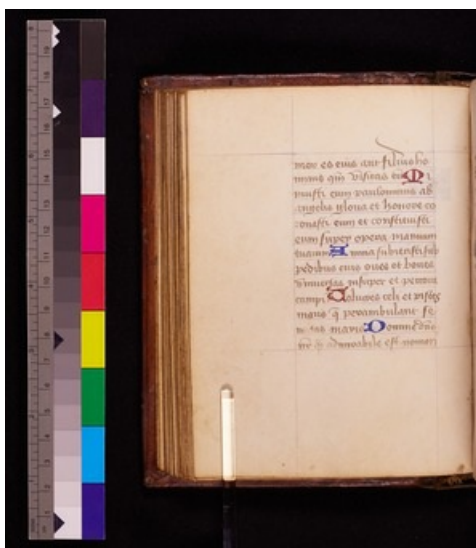 mor es eius aut filius ho
minis qm visitas eum Mi
nuisti eum paulominus ab
angelis gloria et honore co
ronasti eum et constituisti
eum super opera manuum
tuarum Omnia subiecisti sub
pedibus eius oues et boues
vniuersas insuper et pecora
campi Volucres celi et pisces
maris q perambulant se
mitas maris Domine dns
nr q admirabile est nomen